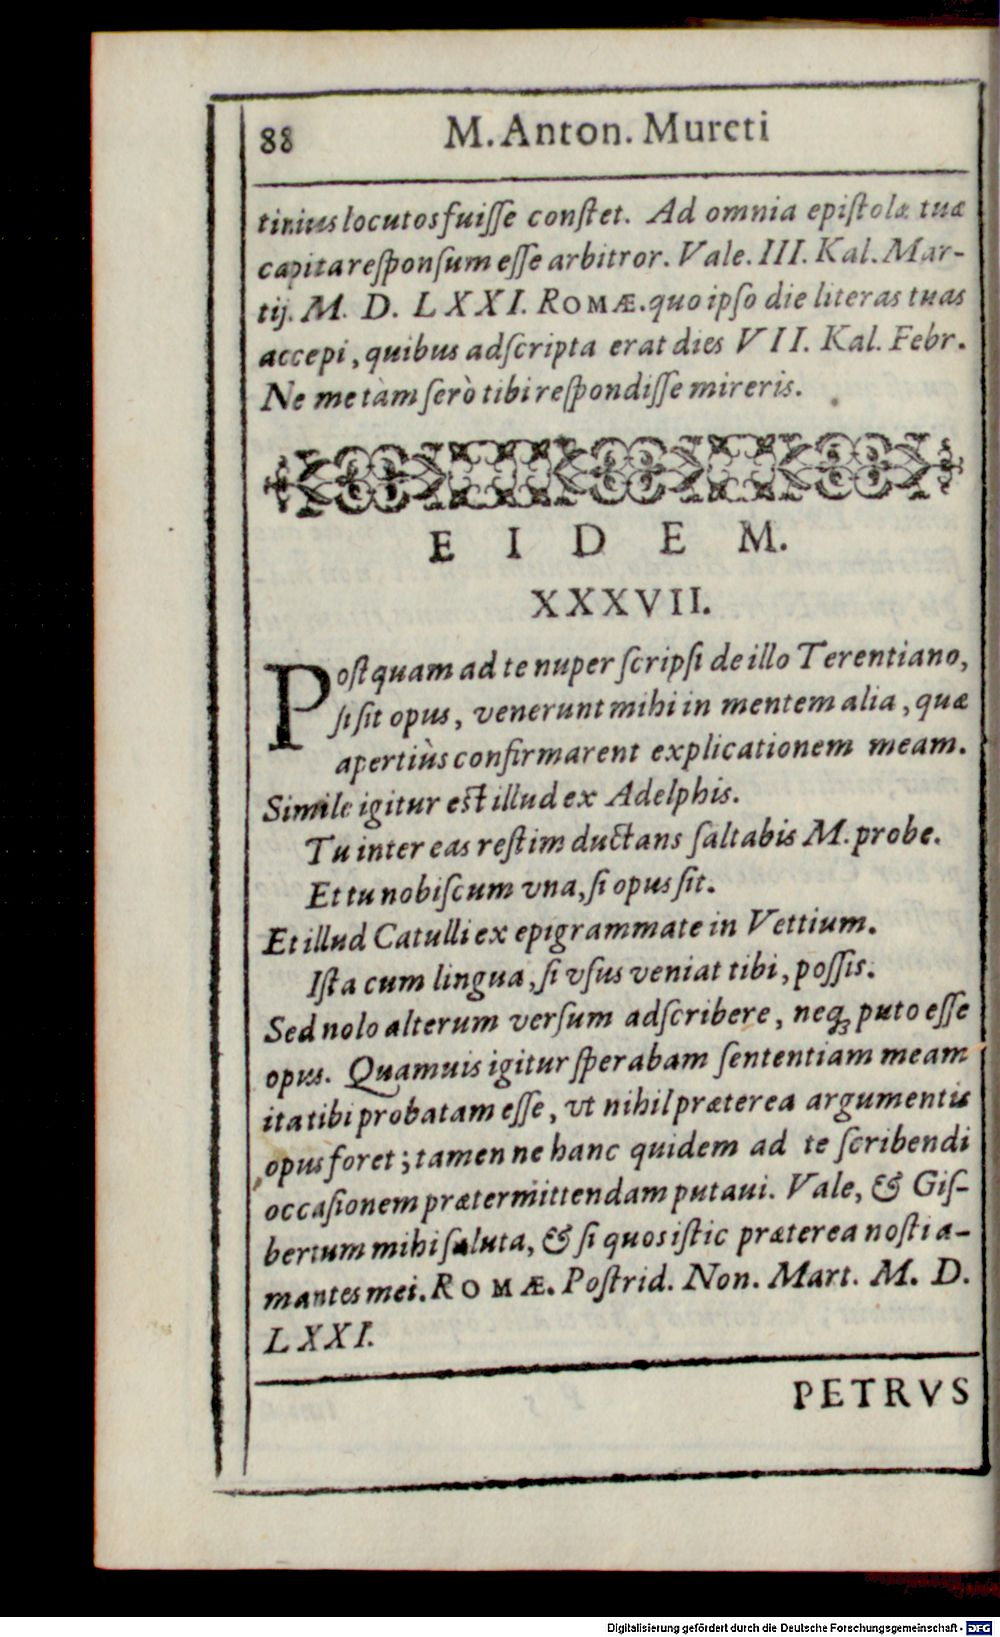 88 M. Anton. Mureti
tinius locutos fuiſſe conſtet. Ad omnia epiſtolæ tuæ
capita reſponſum eſſe arbitror. Vale. III. Kal. Mar-
tij. M. D. LXXI. ROMÆ. quo ipſo die literas tuas
accepi, quibus adſcripta erat dies VII. Kal. Febr.
Ne me tàm ſerò tibi reſpondiſſe mireris.
EIDEM.
XXXVII.
Poſtquam ad te nuper ſcripſi de illo Terentiano,
ſi ſit opus, venerunt mihi in mentem alia, quæ
apertiùs confirmarent explicationem meam.
Simile igitur eſt illud ex Adelphis.
Tu inter eas reſtim ductans ſaltabis M. probe.
Et tu nobiſcum vna, ſi opus ſit.
Et illud Catulli ex epigrammate in Vettium.
Iſta cum lingua, ſi vſus veniat tibi, poſſis.
Sed nolo alterum verſum adſcribere, neqꝫ puto eſſe
opus. Quamuis igitur ſperabam ſententiam meam
ita tibi probatam eſſe, vt nihil præterea argumentis
opus foret; tamen ne hanc quidem ad te ſcribendi
occaſionem prætermittendam putaui. Vale, & Giſ-
bertum mihi ſaluta, & ſi quos iſtic præterea noſti a-
mantes mei. ROMÆ. Poſtrid. Non. Mart. M. D.
LXXI.
PETRVS
Digitalisierung gefördert durch die Deutsche Forschungsgemeinschaft - DFG